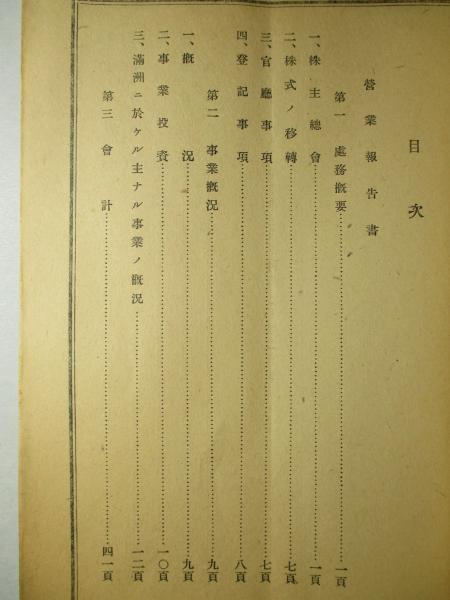 目次
營業報告書
第一 處務概要……一頁
一、株主總會……一頁
二、株式ノ移轉……七頁
三、官廳事項……七頁
四、登記事項……八頁
第二 事業概況……九頁
一、概況……九頁
二、事業投資……一〇頁
三、滿洲ニ於ケル主ナル事業ノ概況……一二頁
第三 會計……四一頁